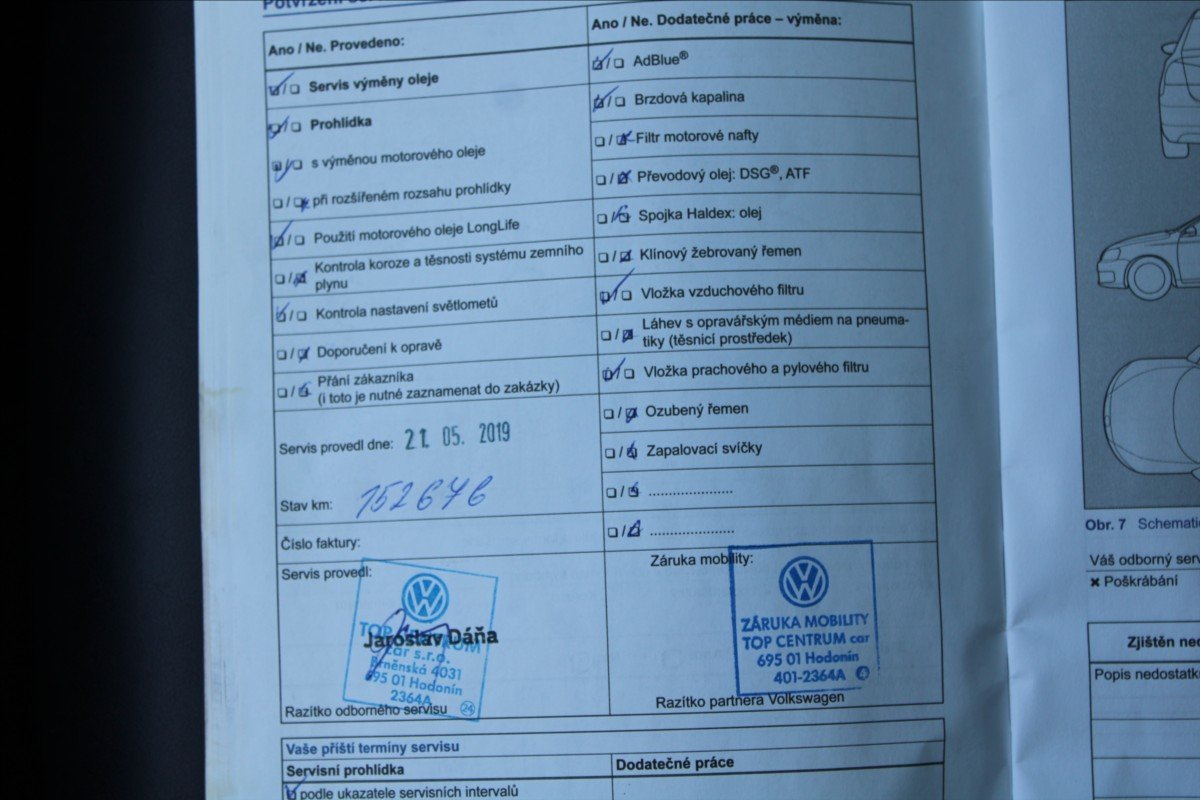 Potvrzení
Ano / Ne. Provedeno:
Servis výměny oleje
Prohlídka
s výměnou motorového oleje
při rozšířeném rozsahu prohlídky
Použití motorového oleje LongLife
Kontrola koroze a těsnosti systému zemního
plynu
Kontrola nastavení světlometů
Doporučení k opravě
Přání zákazníka
(i toto je nutné zaznamenat do zakázky)
Servis provedl dne: 21. 05. 2019
Stav km: 152676
Číslo faktury:
Servis provedl:
TOP CENTRUM
Jaroslav Dáňa
car s.r.o.
Brněnská 4031
695 01 Hodonín
2364A
24
Razítko odborného servisu
Ano / Ne. Dodatečné práce – výměna:
AdBlue®
Brzdová kapalina
Filtr motorové nafty
Převodový olej: DSG®, ATF
Spojka Haldex: olej
Klínový žebrovaný řemen
Vložka vzduchového filtru
Láhev s opravářským médiem na pneuma-
tiky (těsnicí prostředek)
Vložka prachového a pylového filtru
Ozubený řemen
Zapalovací svíčky
Záruka mobility:
ZÁRUKA MOBILITY
TOP CENTRUM car
695 01 Hodonín
401-2364A 4
Razítko partnera Volkswagen
Vaše příští termíny servisu
Servisní prohlídka
Dodatečné práce
podle ukazatele servisních intervalů
Obr. 7 Schemati
Váš odborný serv
× Poškrábání
Zjištěn ned
Popis nedostatk